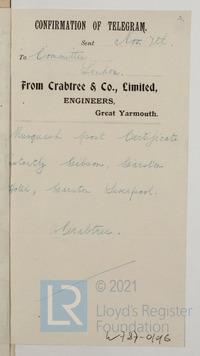 CONFIRMATION OF TELEGRAM.
Sent Nov. 7th
To Committee
London.
From Crabtree & Co., Limited,
ENGINEERS,
Great Yarmouth.
post Certificate
Gibson, Garston
Garston Liverpool.
Crabtree.
© 2021
LR
Lloyd's Register
Foundation
W787-0196